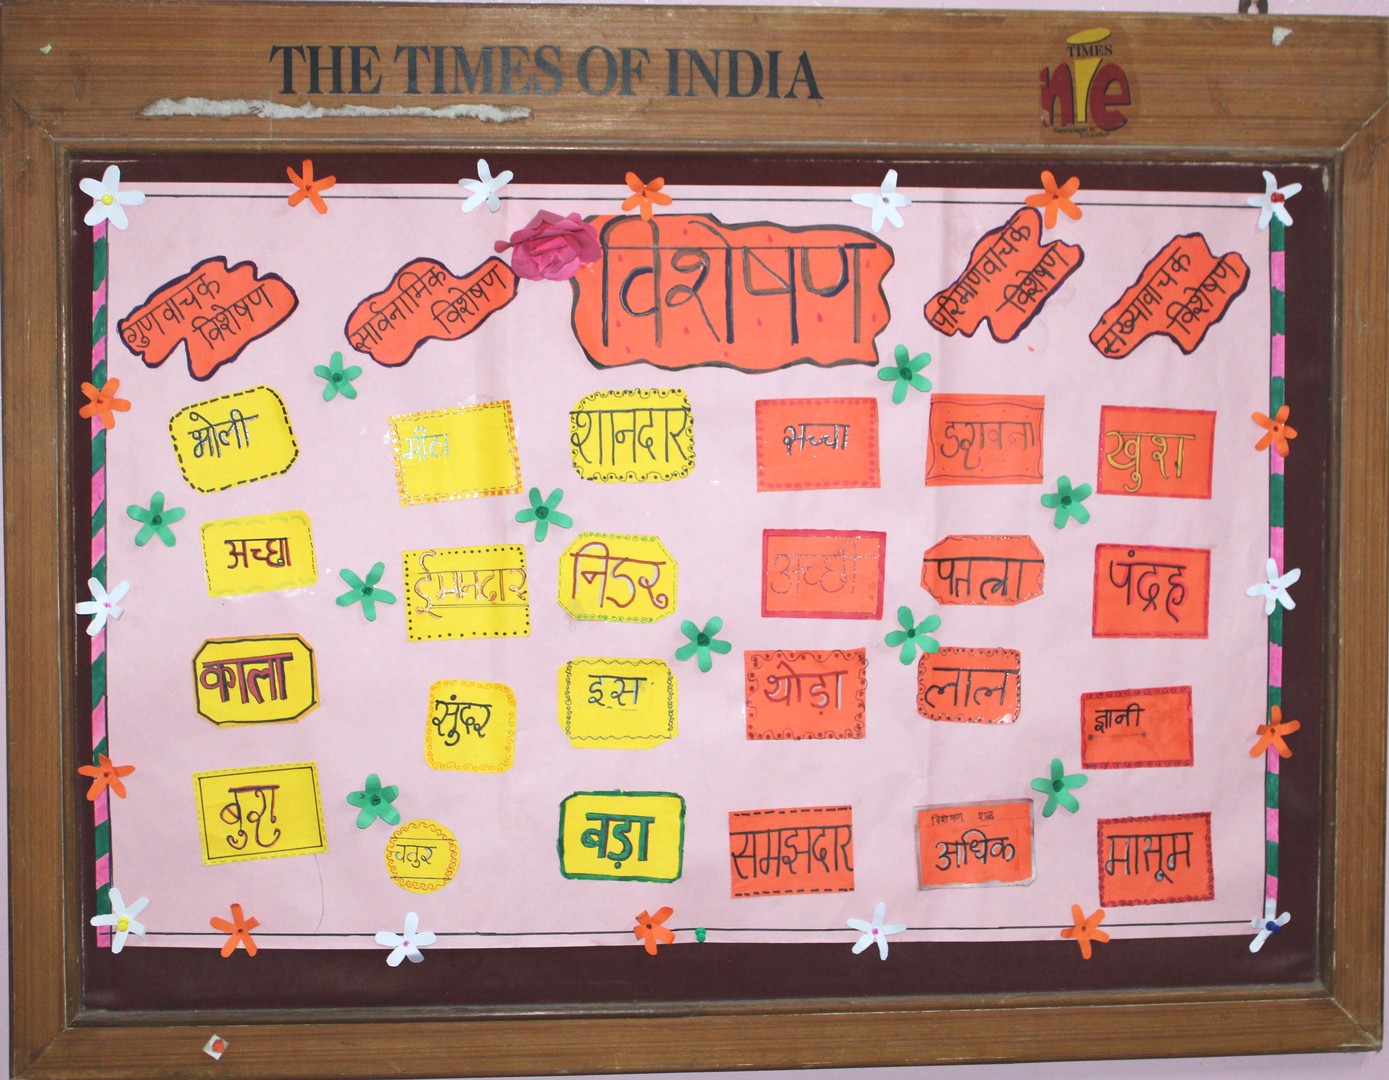 THE TIMES OF INDIA
TIMES
nie
Newspaper in
Education
विशेषण
गुणवाचक
विशेषण
सार्वनामिक
विशेषण
परिमाणवाचक
विशेषण
संख्यावाचक
विशेषण
भोली
मीठा
शानदार
सच्चा
डरावना
खुश
अच्छा
ईमानदार
निडर
अच्छी
पतला
पंद्रह
काला
सुंदर
इस
थोड़ा
लाल
ज्ञानी
बुरा
चतुर
बड़ा
समझदार
विशेषण शब्द
अधिक
मासूम